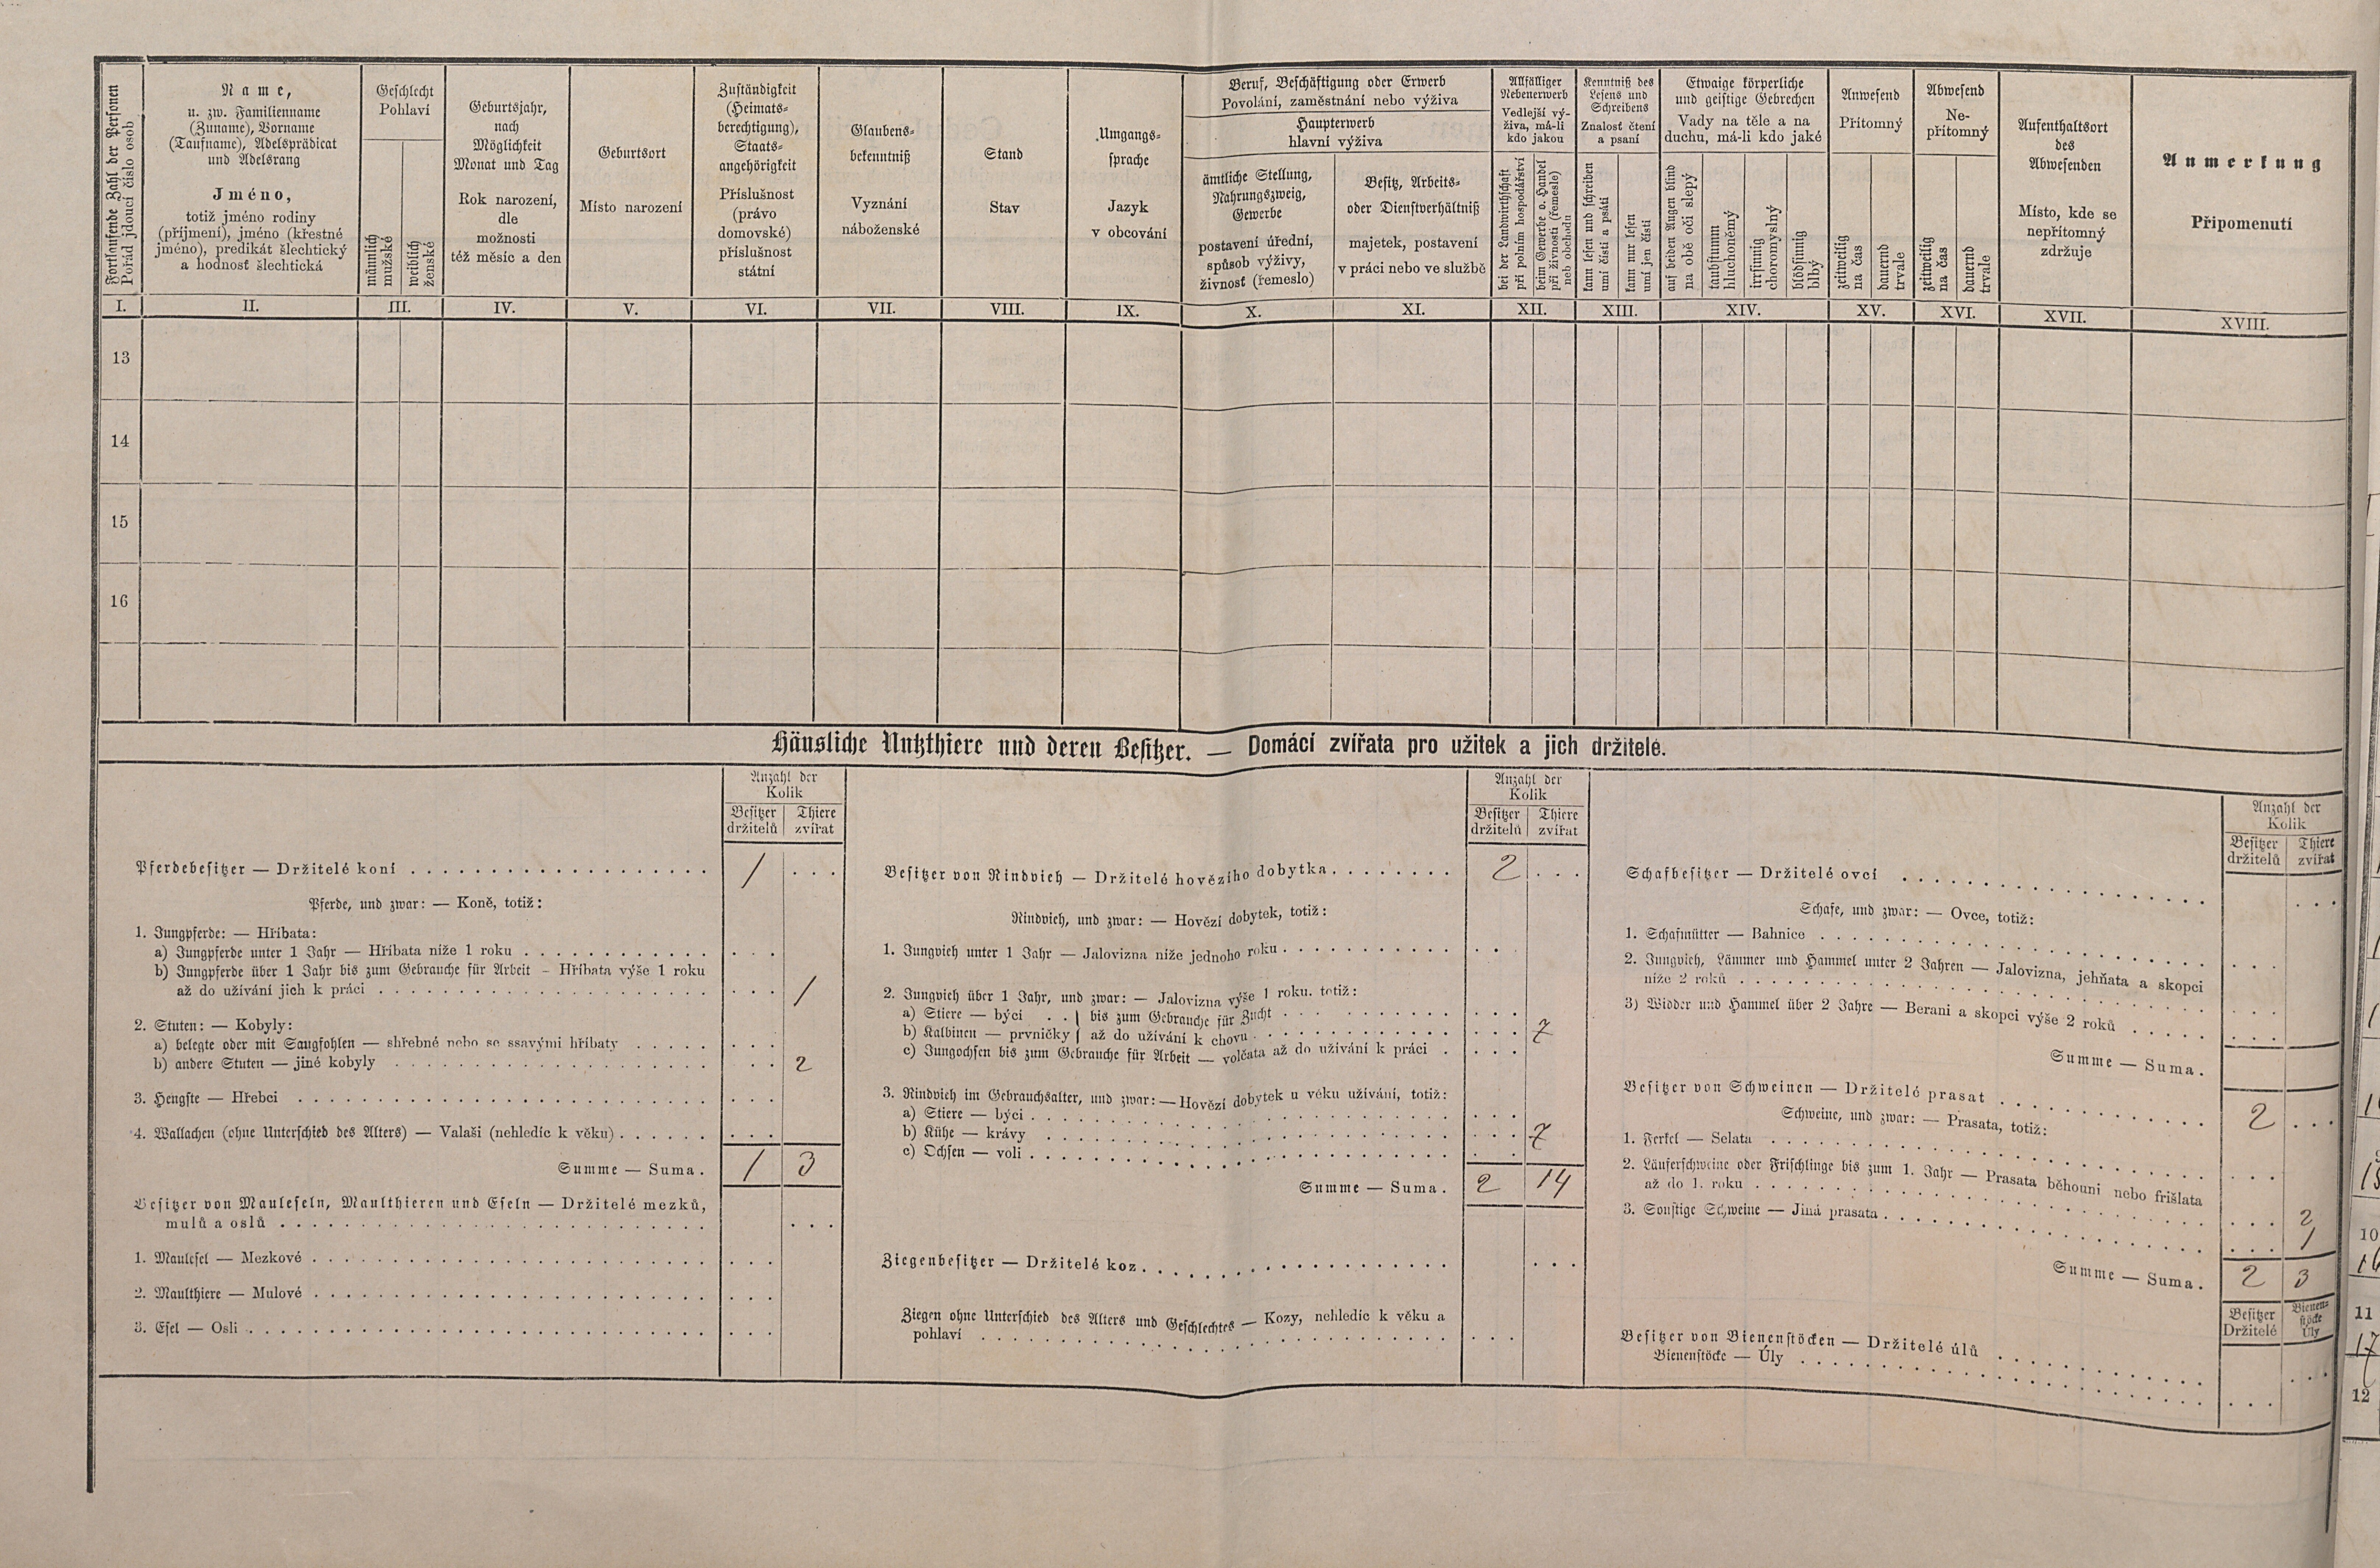 Fortlaufende Zahl der Personen
Pořád jdoucí číslo osob
Name,
u. zw. Familienname
(Zuname), Vorname
(Taufname), Adelsprädicat
und Adelsrang
Jméno,
totiž jméno rodiny
(příjmení), jméno (křestné
jméno), predikát šlechtický
a hodnost šlechtická
Geschlecht
Pohlaví
männlich
mužské
weiblich
ženské
Geburtsjahr,
nach
Möglichkeit
Monat und Tag
Rok narození,
dle
možnosti
též měsíc a den
Geburtsort
Místo narození
Zuständigkeit
(Heimats-
berechtigung),
Staats-
angehörigkeit
Příslušnost
(právo
domovské)
příslušnost
státní
Glaubens-
bekenntniß
Vyznání
náboženské
Stand
Stav
Umgangs-
sprache
Jazyk
v obcování
Beruf, Beschäftigung oder Erwerb
Povolání, zaměstnání nebo výživa
Haupterwerb
hlavní výživa
ämtliche Stellung,
Nahrungszweig,
Gewerbe
postavení úřední,
způsob výživy,
živnost (řemeslo)
Besitz, Arbeits-
oder Dienstverhältniß
majetek, postavení
v práci nebo ve službě
Allfälliger
Nebenerwerb
Vedlejší vý-
živa, má-li
kdo jakou
bei der Landwirthschaft
při polním hospodářství
beim Gewerbe o. Handel
při živnosti (řemesle)
neb obchodu
Kenntniß des
Lesens und
Schreibens
Znalost čtení
a psaní
kann lesen und schreiben
umí čísti a psáti
kann nur lesen
umí jen čísti
Etwaige körperliche
und geistige Gebrechen
Vady na těle a na
duchu, má-li kdo jaké
auf beiden Augen blind
na obě oči slepý
taubstumm
hluchoněmý
irrsinnig
choromyslný
blödsinnig
blbý
Anwesend
Přítomný
zeitweilig
na čas
dauernd
trvale
Abwesend
Ne-
přítomný
zeitweilig
na čas
dauernd
trvale
Aufenthaltsort
des
Abwesenden
Místo, kde se
nepřítomný
zdržuje
Anmerkung
Připomenutí
I. II. III. IV. V. VI. VII. VIII. IX. X. XI. XII. XIII. XIV. XV. XVI. XVII. XVIII.
13
14
15
16
Häusliche Nutzthiere und deren Besitzer. — Domácí zvířata pro užitek a jich držitelé.
Anzahl der
Kolik
Besitzer Thiere
držitelů zvířat
Pferdebesitzer — Držitelé koní 1
Pferde, und zwar: — Koně, totiž:
1. Jungpferde: — Hříbata:
a) Jungpferde unter 1 Jahr — Hříbata níže 1 roku
b) Jungpferde über 1 Jahr bis zum Gebrauche für Arbeit — Hříbata výše 1 roku
až do užívání jich k práci 1
2. Stuten: — Kobyly:
a) belegte oder mit Saugfohlen — shřebné nebo se ssavými hříbaty
b) andere Stuten — jiné kobyly 2
3. Hengste — Hřebci
4. Wallachen (ohne Unterschied des Alters) — Valaši (nehledíc k věku)
Summe — Suma. 1 3
Besitzer von Mauleseln, Maulthieren und Eseln — Držitelé mezků,
mulů a oslů
1. Maulesel — Mezkové
2. Maulthiere — Mulové
3. Esel — Osli
Anzahl der
Kolik
Besitzer Thiere
držitelů zvířat
Besitzer von Rindvieh — Držitelé hovězího dobytka 2
Rindvieh, und zwar: — Hovězí dobytek, totiž:
1. Jungvieh unter 1 Jahr — Jalovizna níže jednoho roku
2. Jungvieh über 1 Jahr, und zwar: — Jalovizna výše 1 roku. totiž:
a) Stiere — býci } bis zum Gebrauche für Zucht
b) Kalbinen — prvničky } až do užívání k chovu 7
c) Jungochsen bis zum Gebrauche für Arbeit — volčata až do užívání k práci
3. Rindvieh im Gebrauchsalter, und zwar: — Hovězí dobytek u věku užívání, totiž:
a) Stiere — býci
b) Kühe — krávy 7
c) Ochsen — voli
Summe — Suma. 2 14
Ziegenbesitzer — Držitelé koz
Ziegen ohne Unterschied des Alters und Geschlechtes — Kozy, nehledíc k věku a
pohlaví
Anzahl der
Kolik
Besitzer Thiere
držitelů zvířat
Schafbesitzer — Držitelé ovcí
Schafe, und zwar: — Ovce, totiž:
1. Schafmütter — Bahnice
2. Jungvieh, Lämmer und Hammel unter 2 Jahren — Jalovizna, jehňata a skopci
níže 2 roků
3) Widder und Hammel über 2 Jahre — Berani a skopci výše 2 roků
Summe — Suma.
Besitzer von Schweinen — Držitelé prasat 2
Schweine, und zwar: — Prasata, totiž:
1. Ferkel — Selata
2. Läuferschweine oder Frischlinge bis zum 1. Jahr — Prasata běhouni nebo frišlata
až do 1. roku 2
3. Sonstige Schweine — Jiná prasata 1
Summe — Suma. 2 3
Besitzer Bienen-
stöcke
Držitelé Úly
Besitzer von Bienenstöcken — Držitelé úlů
Bienenstöcke — Úly
10
11
17
12